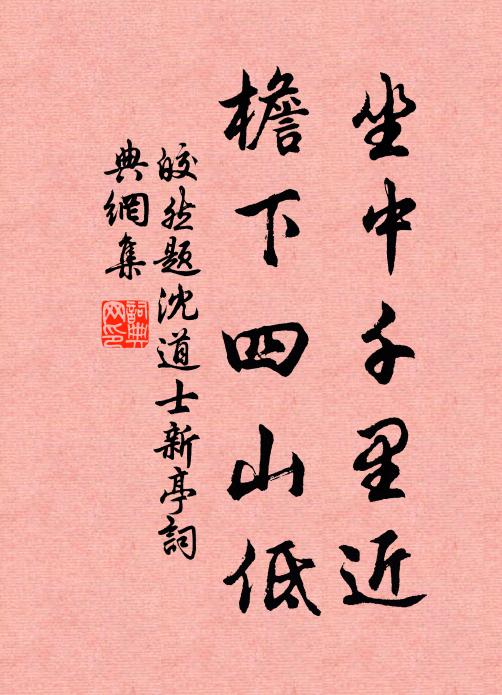 坐中千里近
檐下四山低
皎然题沈道士新亭词
典網集
詞典網印